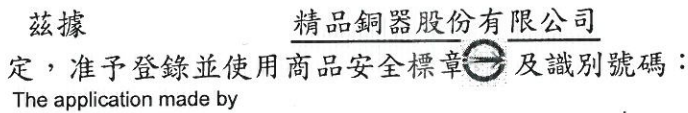 茲據 精品銅器股份有限公司
定，准予登錄並使用商品安全標章 及識別號碼：
The application made by